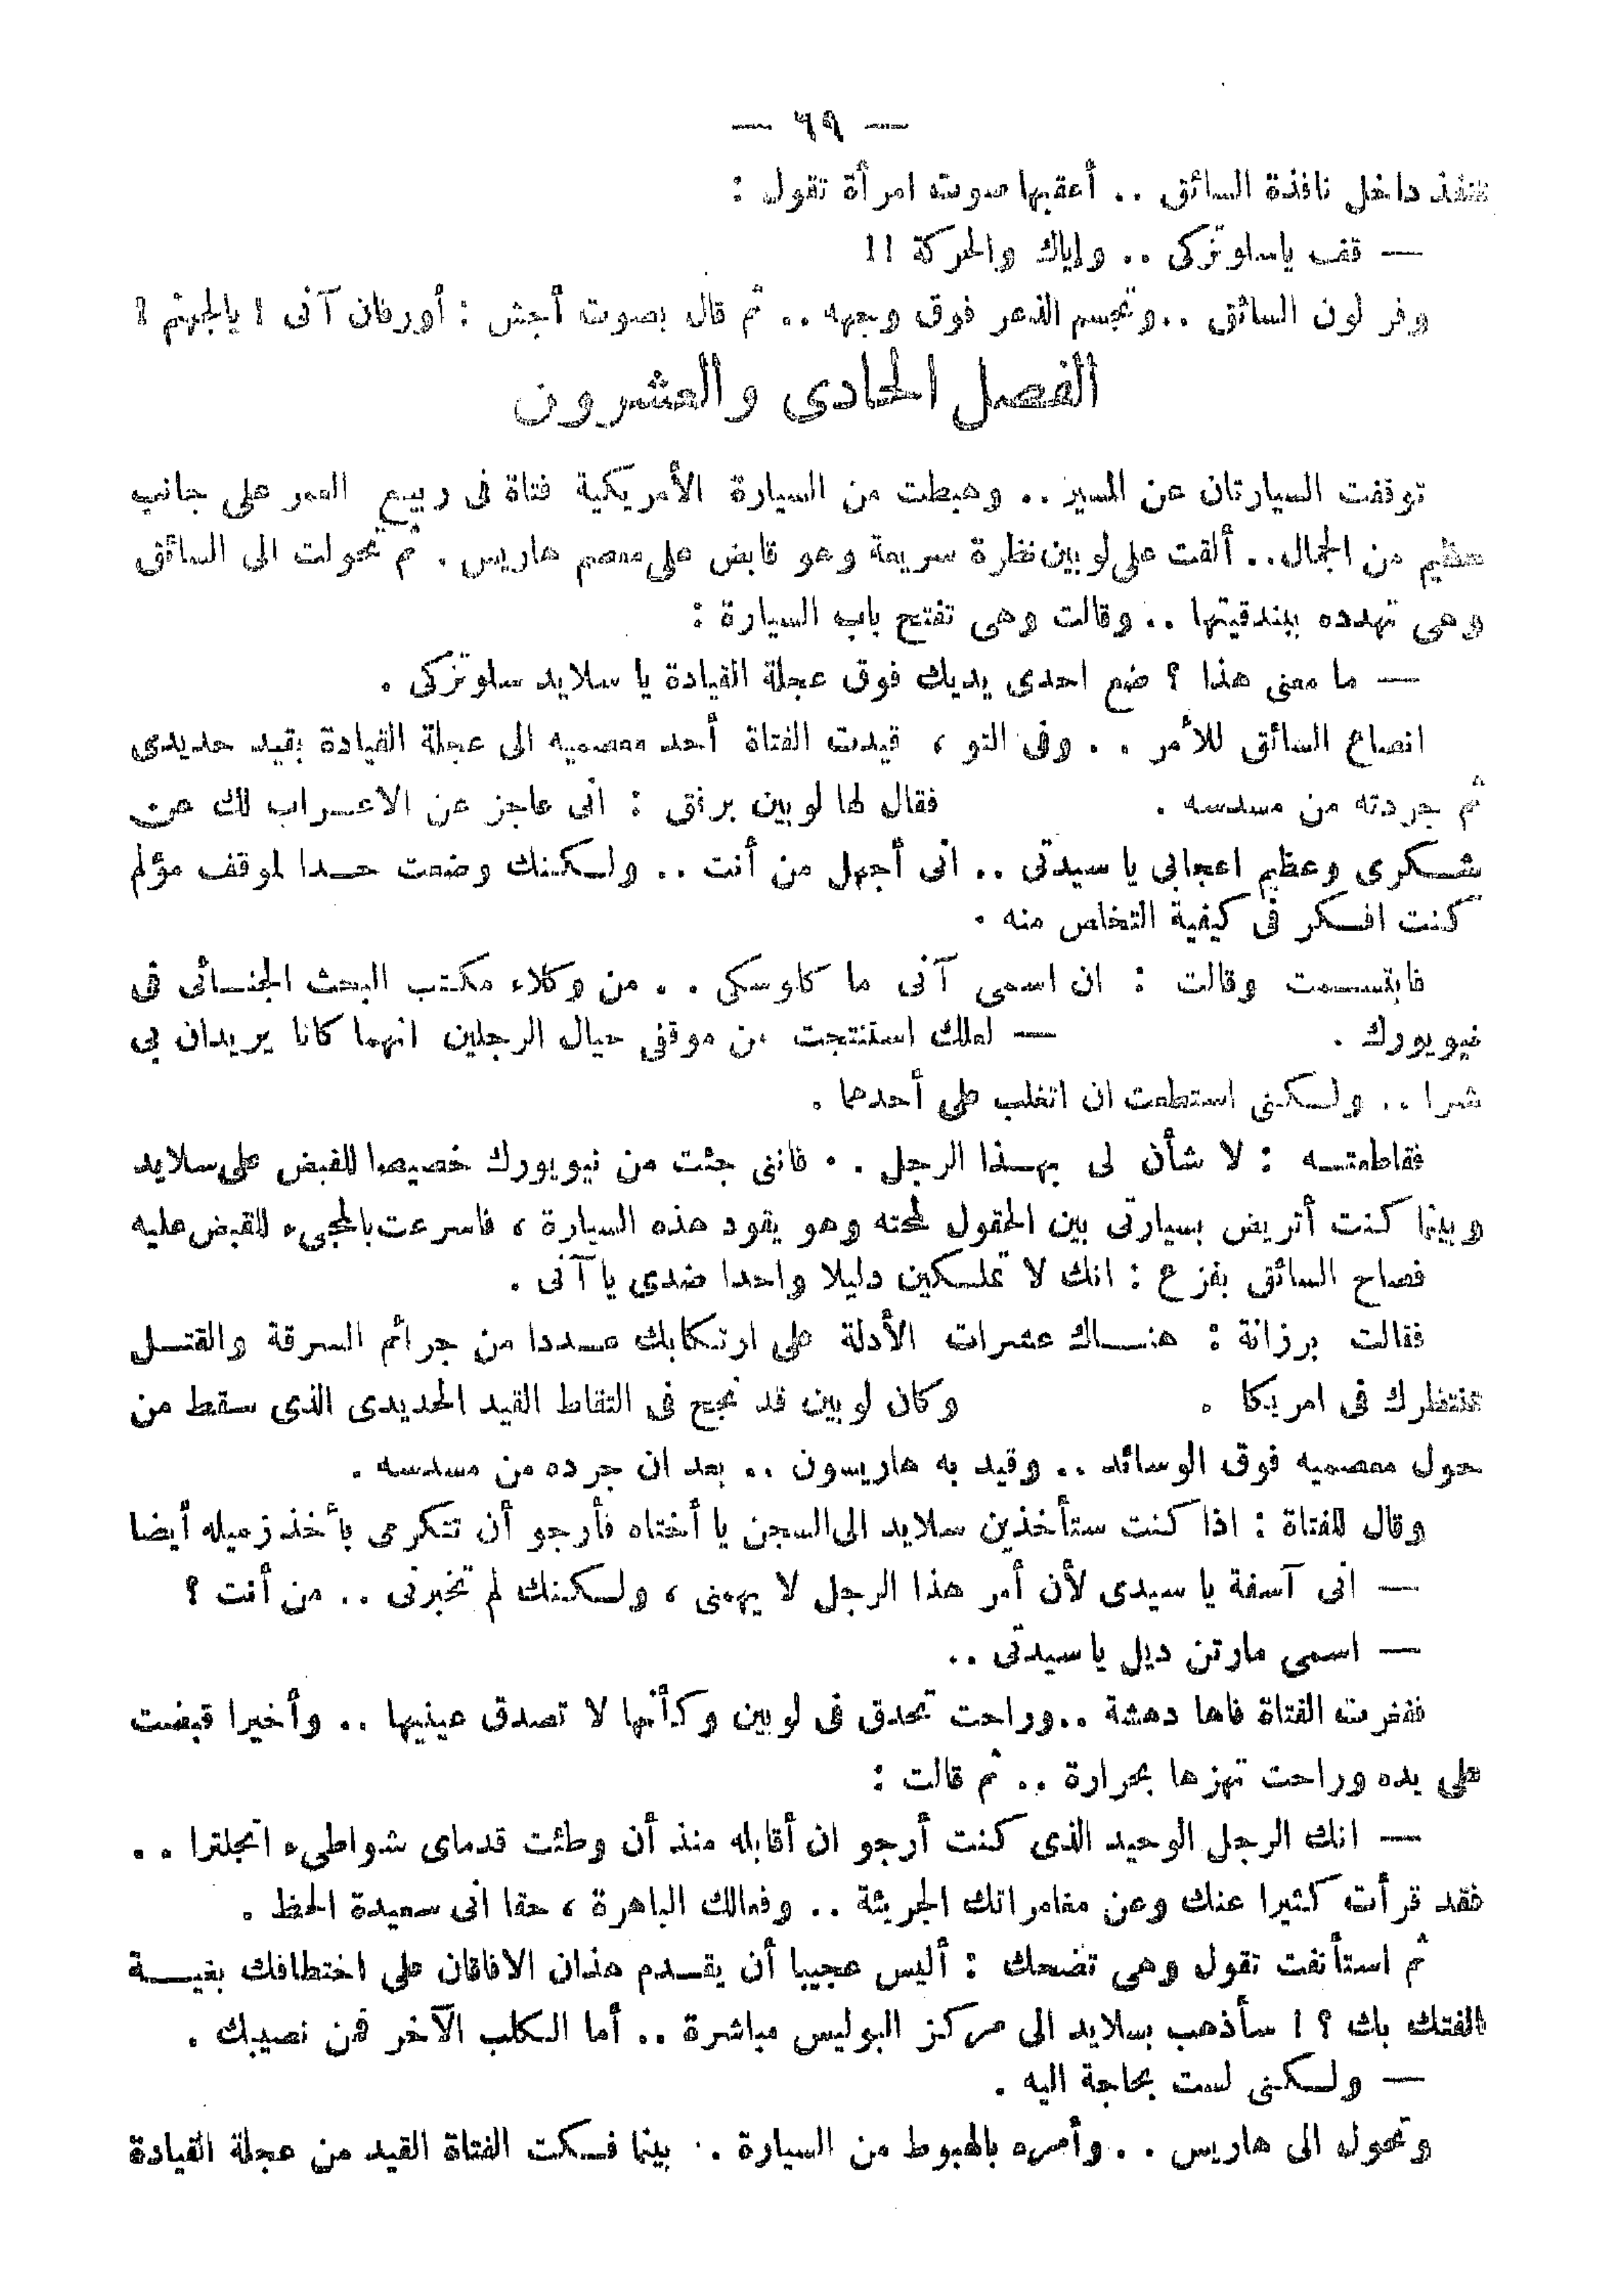 — ٦٩ —
تنفذ داخل نافذة السائق .. أعقبها صوت امرأة تقول :
— قف ياسلوتزكى .. وإياك والحركة !!
وفر لون السائق ..وتجسم الذعر فوق وجهه .. ثم قال بصوت أجش : أورفان آنى ! يالجهنم !
الفصل الحادى والعشرون
توقفت السيارتان عن المسير .. وهبطت من السيارة الأمريكية فتاة فى ربيع العمر على جانب
عظيم من الجمال.. ألقت على لوبين نظرة سريعة وهو قابض على معصم هاريس . ثم تحولت الى السائق
وهى تهدده ببندقيتها .. وقالت وهى تفتح باب السيارة :
— ما معنى هذا ؟ ضع احدى يديك فوق عجلة القيادة يا سلايد سلوتزكى .
انصاع السائق للأمر . . وفى التو ، قيدت الفتاة أحد معصميه الى عجلة القيادة بقيد حديدى
ثم جردته من مسدسه . فقال لها لوبين برفق : انى عاجز عن الاعراب لك عن
شكرى وعظيم اعجابى يا سيدتى .. انى أجهل من أنت .. ولكنك وضعت حدا لموقف مؤلم
كنت افكر فى كيفية التخلص منه .
فابتسمت وقالت : ان اسمى آنى ما كاوسكى . . من وكلاء مكتب البحث الجنائى فى
نيويورك . — لعلك استنتجت من موقفى حيال الرجلين انهما كانا يريدان بى
شرا .. ولكنى استطعت ان اتغلب على أحدهما .
فقاطعته : لا شأن لى بهذا الرجل . . فانى جئت من نيويورك خصيصا للقبض على سلايد
وبينما كنت أتريض بسيارتى بين الحقول لمحته وهو يقود هذه السيارة ، فاسرعت بالمجىء للقبض عليه
فصاح السائق بفزع : انك لا تملكين دليلا واحدا ضدى يا آنى .
فقالت برزانة : هناك عشرات الأدلة على ارتكابك عددا من جرائم السرقة والقتل
تنتظرك فى امريكا . وكان لوبين قد نجح فى التقاط القيد الحديدى الذى سقط من
حول معصميه فوق الوسائد .. وقيد به هاريسون .. بعد ان جرده من مسدسه .
وقال للفتاة : اذا كنت ستأخذين سلايد الى السجن يا أختاه فأرجو أن تتكرمى بأخذ زميله أيضا
— انى آسفة يا سيدى لأن أمر هذا الرجل لا يهمنى ، ولكنك لم تخبرنى .. من أنت ؟
— اسمى مارتن ديل ياسيدتى ..
ففغرت الفتاة فاها دهشة ..وراحت تحدق فى لوبين وكأنها لا تصدق عينيها .. وأخيرا قبضت
على يده وراحت تهزها بحرارة .. ثم قالت :
— انك الرجل الوحيد الذى كنت أرجو ان أقابله منذ أن وطئت قدماى شواطىء انجلترا ..
فقد قرأت كثيرا عنك وعن مغامراتك الجريئة .. وفعالك الباهرة ، حقا انى سعيدة الحظ .
ثم استأنفت تقول وهى تضحك : أليس عجيبا أن يقدم هذان الافاقان على اختطافك بغية
الفتك بك ؟ ! سأذهب بسلايد الى مركز البوليس مباشرة .. أما الكلب الآخر فمن نصيبك .
— ولكنى لست بحاجة اليه .
وتحول الى هاريس . . وأمره بالهبوط من السيارة . . بينما فكت الفتاة القيد من عجلة القيادة